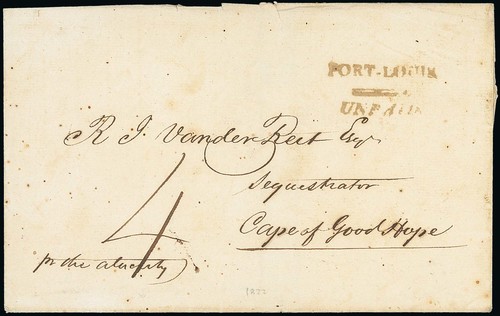 PORT-LOUIS
UNPAID
R J. Vander Reit Esqr
Sequestrator
Cape of Good Hope
4
pr the